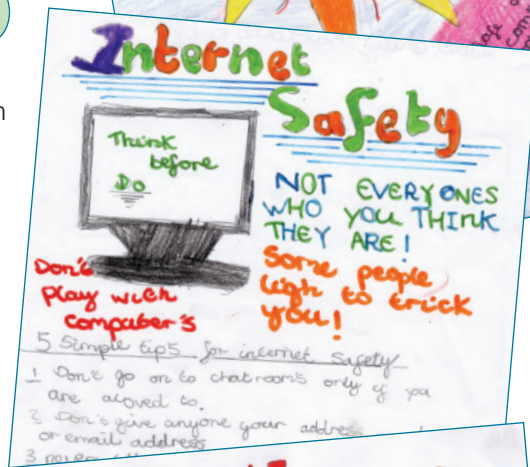 safe
con
n
Internet
Safety
Think
before
Do
NOT EVERY ONES
WHO YOU THINK
THEY ARE!
Some people
ligh to trick
you!
Don't
Play with
computer's
5 Simple tips for internet Safety
1 Don't go on to chatrooms only if you
are aloved to.
2 Don't give anyone your address
or email address
3 never